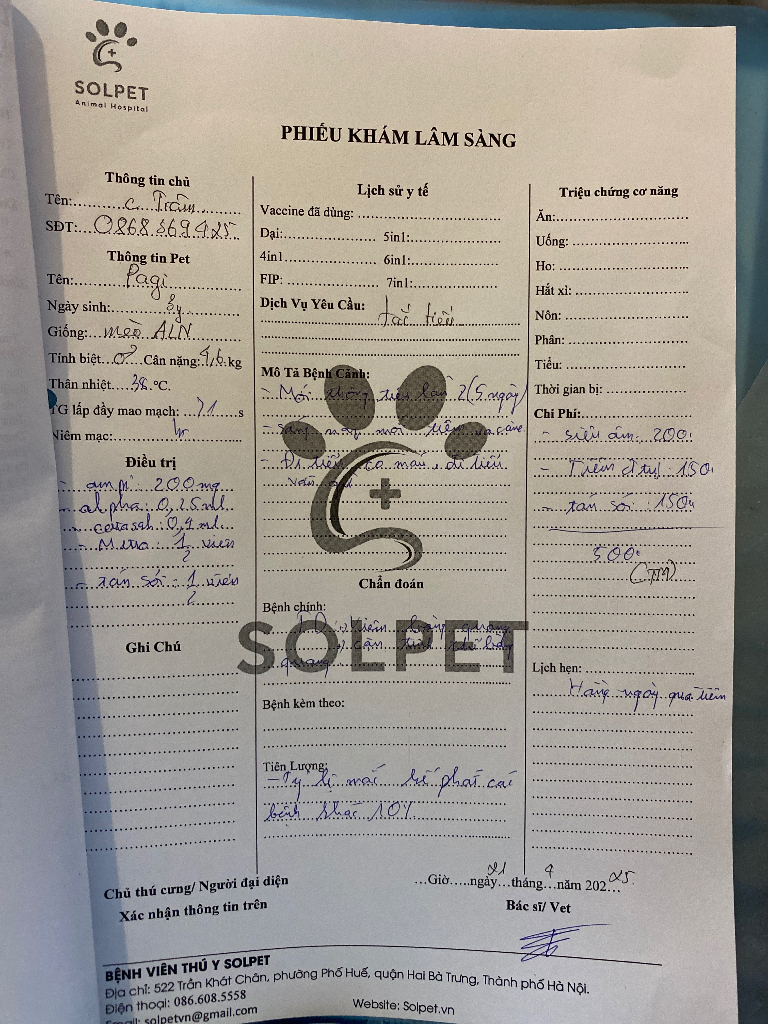 SOLPET
Animal Hospital
PHIẾU KHÁM LÂM SÀNG
Thông tin chủ
Tên: c. Trâm
SĐT: 0868.369.425
Thông tin Pet
Tên: Pagi
Ngày sinh: 8y
Giống: mèo ALN
Tính biệt ♂ Cân nặng: 4,6 kg
Thân nhiệt 38 °C.
TG lấp đầy mao mạch: 71 s
Niêm mạc:
Điều trị
- ampi: 200 mg
- alpha: 0,25ml
- catosal: 0,1 ml
- Mitro: 1/2 viên
- tán sỏi: 1/2 viên
Ghi Chú
Lịch sử y tế
Vaccine đã dùng:
Dại: 5in1:
4in1 6in1:
FIP: 7in1:
Dịch Vụ Yêu Cầu: tắc tiểu
Mô Tả Bệnh Cảnh:
- Mới thông tiểu lần 2 (5 ngày)
- Sáng nay mới tiêm vaccine
- Đi tiểu có máu, đi tiểu
Chẩn đoán
Bệnh chính:
viêm bàng quang
cặn
quang
Bệnh kèm theo:
Tiên Lượng:
- Tỷ lệ mắc kế phát các
bệnh khác 10%
Triệu chứng cơ năng
Ăn:
Uống:
Ho:
Hắt xì:
Nôn:
Phân:
Tiểu:
Thời gian bị:
Chi Phí:
- siêu âm: 200
- Tiêm đ trị: 150
- tán sỏi: 150
500
(TM)
Lịch hẹn:
Hàng ngày qua tiêm
Chủ thú cưng/ Người đại diện
Xác nhận thông tin trên
...Giờ.....ngày 21 tháng 9 năm 2025
Bác sĩ/ Vet
SOLPET
BỆNH VIÊN THÚ Y SOLPET
Địa chỉ: 522 Trần Khát Chân, phường Phố Huế, quận Hai Bà Trưng, Thành phố Hà Nội.
Điện thoại: 086.608.5558 Website: Solpet.vn
Email: solpetvn@gmail.com